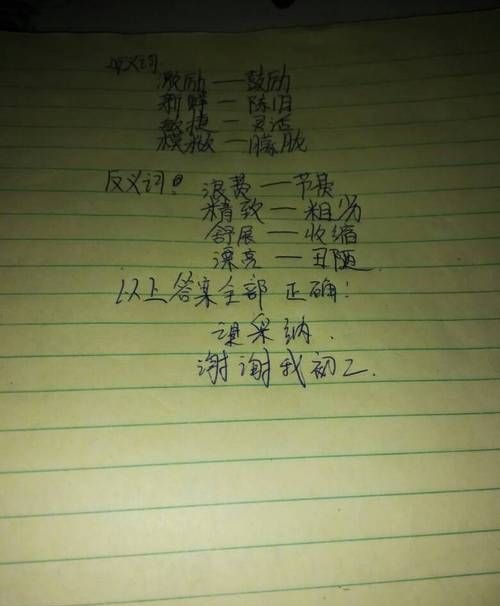 反义词
激励一鼓励
新鲜一陈旧
敏捷一灵活
模糊一朦胧
反义词:
浪费一节俭
精致一粗劣
舒展一收缩
漂亮一丑陋
以上答案全部正确!
望采纳.
谢谢我初二.